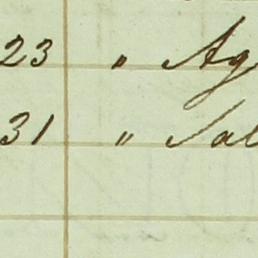 23 " Ag
31 " Sal